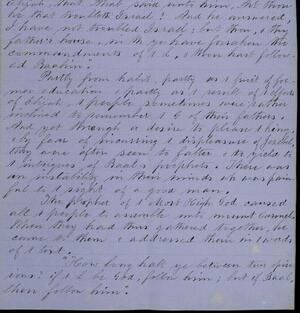 Elijah, that Ahab said unto him, Art thou
he that troubleth Israel? And he answered,
I have not troubled Israel; but thou, & thy
father's house, in th ye have forsaken the
commandments of t L, & thou hast follow-
ed Baalim."
Partly from habit, partly as t fruit of for-
mer education, & partly as t result of t efforts
of Elijah, t people sometimes were rather
inclined to remember t G of their fathers.
And yet through a desire to please t king,
& by fear of incurring t displeasure of Jezebel,
they are often seen to falter, & to yield to
t intrigues of Baal's prophets. There was
an instability in their minds wh was pain-
ful to t sight of a good man.
The prophet of t Most High God caused
all t people to assemble unto mount Carmel.
When they had thus gathered together, he
came to them & addressed them in t words
of t text.
"How long halt ye between two opin-
ions? if t L be God, follow him; but if Baal,
then follow him".